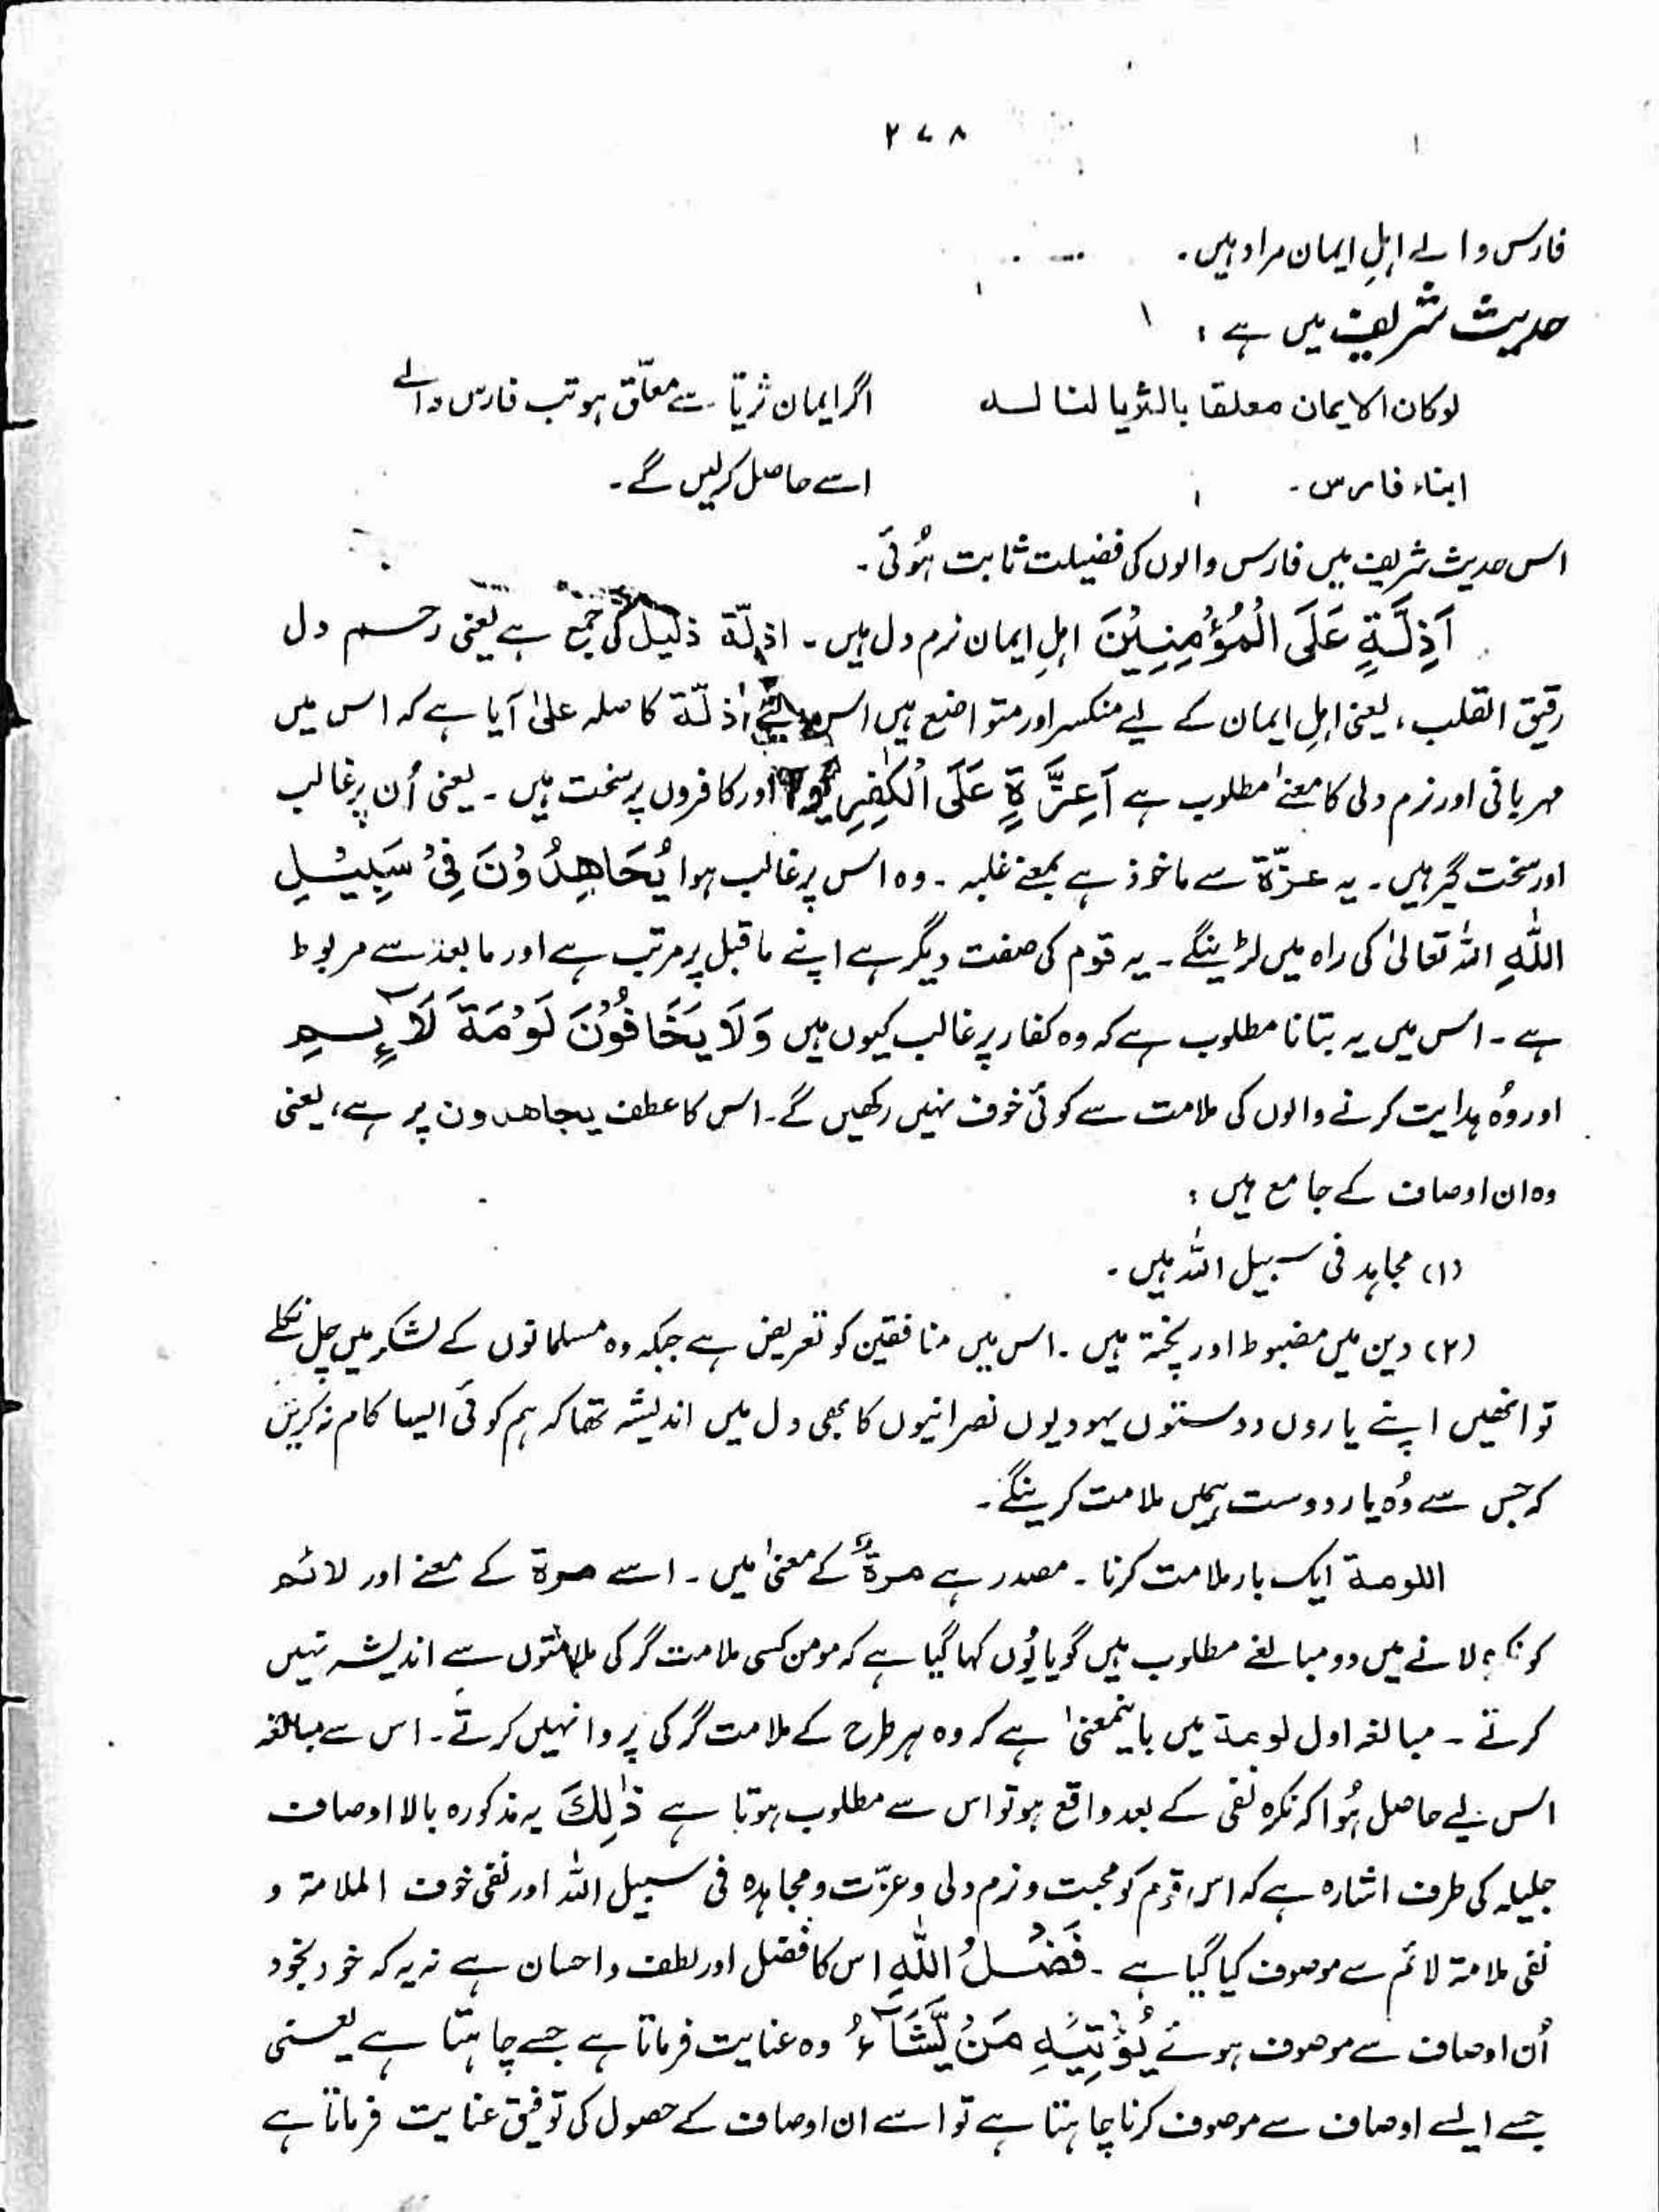 ۲۷۸
فارس والے اہلِ ایمان مراد ہیں۔
حدیث شریف میں ہے:
لوکان الایمان معلقا بالثریا لنا لہ
اگر ایمان ثریّا سے معلّق ہو تب فارس والے
ابناء فارس۔
اسے حاصل کرلیں گے۔
اس حدیث شریف میں فارس والوں کی فضیلت ثابت ہُوئی۔
اَذِلَّۃٍ عَلَی الْمُؤْمِنِیْنَ اہلِ ایمان نرم دل ہیں۔ اذلّۃ ذلیل کی جمع ہے یعنی رحم دل
رقیق القلب، یعنی اہلِ ایمان کے لیے منکسر اور متواضع ہیں اس لئے اذلّۃ کا صلہ علیٰ آیا ہے کہ اس میں
مہربانی اور نرم دلی کا معنےٰ مطلوب ہے اَعِزَّۃٍ عَلَی الْکٰفِرِیْنَ اور کافروں پر سخت ہیں۔ یعنی اُن پر غالب
اور سخت گیر ہیں۔ یہ عزّۃ سے ماخوذ ہے بمعنے غلبہ۔ وہ اس پر غالب ہوا یُجَاھِدُوْنَ فِیْ سَبِیْلِ
اللّٰہِ اللہ تعالیٰ کی راہ میں لڑینگے۔ یہ قوم کی صفت دیگر ہے اپنے ماقبل پر مرتب ہے اور مابعد سے مربوط
ہے۔ اس میں یہ بتانا مطلوب ہے کہ وہ کفار پر غالب کیوں ہیں وَلَا یَخَافُوْنَ لَوْمَۃَ لَآئِمٍ
اور وُہ ہدایت کرنے والوں کی ملامت سے کوئی خوف نہیں رکھیں گے۔ اس کا عطف یجاھدون پر ہے، یعنی
وہ ان اوصاف کے جامع ہیں:
(۱) مجاہد فی سبیل اللہ ہیں۔
(۲) دین میں مضبوط اور پختہ ہیں۔ اس میں منافقین کو تعریض ہے جبکہ وہ مسلمانوں کے لشکر میں چل نکلے
تو انھیں اپنے یاروں دوستوں یہودیوں نصرانیوں کا بھی دل میں اندیشہ تھا کہ ہم کوئی ایسا کام نہ کریں
کہ جس سے وُہ یار دوست ہمیں ملامت کرینگے۔
اللومۃ ایک بار ملامت کرنا۔ مصدر ہے مرۃٌ کے معنیٰ میں۔ اسے مرۃ کے معنے اور لائم
کو نکرہ لانے میں دو مبالغے مطلوب ہیں گویا یُوں کہا گیا ہے کہ مومن کسی ملامت گر کی ملامتوں سے اندیشہ نہیں
کرتے۔ مبالغہ اول لومۃ میں باینمعنیٰ ہے کہ وہ ہر طرح کے ملامت گر کی پروا نہیں کرتے۔ اس سے مبالغہ
اس لیے حاصل ہُوا کہ نکرہ نفی کے بعد واقع ہو تو اس سے مطلوب ہوتا ہے ذٰلِکَ یہ مذکورہ بالا اوصاف
جلیلہ کی طرف اشارہ ہے کہ اس قوم کو محبت و نرم دلی و عزّت و مجاہدہ فی سبیل اللہ اور نفی خوف الملامۃ و
نفی ملامۃ لائم سے موصوف کیا گیا ہے۔ فَضْلُ اللّٰہِ اس کا فضل اور لطف و احسان ہے نہ یہ کہ خود بخود
اُن اوصاف سے موصوف ہوئے یُؤْتِیْہِ مَنْ یَّشَآءُ وہ عنایت فرماتا ہے جسے چاہتا ہے یعنی
جسے ایسے اوصاف سے موصوف کرنا چاہتا ہے تو اسے ان اوصاف کے حصول کی توفیق عنایت فرماتا ہے